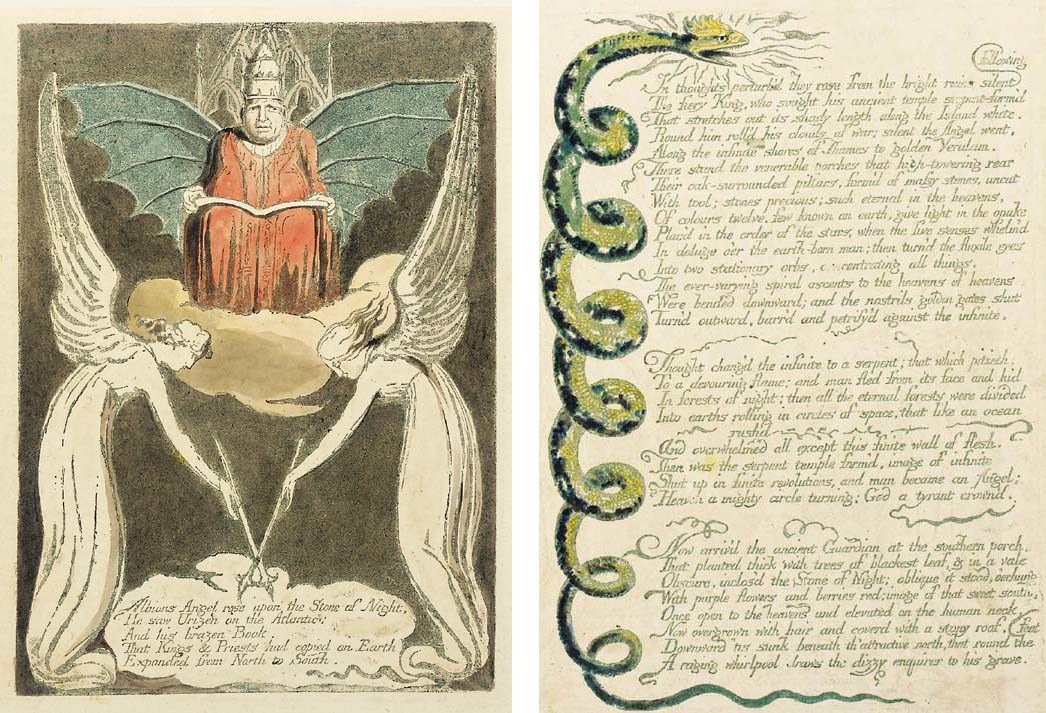 Albions Angel rose upon the Stone of Night.
He saw Urizen on the Atlantic;
And his brazen Book,
That Kings & Priests had copied on Earth
Expanded from North to South.
following
In thoughts perturb'd they rose from the bright ruins silent
The fiery King, who sought his ancient temple serpent-form'd
That stretches out its shady length along the Island white.
Round him roll'd his clouds of war; silent the Angel went,
Along the infinite shores of Thames to golden Verulam.
There stand the venerable porches that high-towering rear
Their oak-surrounded pillars, form'd of massy stones, uncut
With tool; stones precious; such eternal in the heavens,
Of colours twelve. few known on earth, give light in the opake
Plac'd in the order of the stars, when the five senses whelm'd
In deluge o'er the earth-born man; then turn'd the fluxile eyes
Into two stationary orbs, concentrating all things.
The ever-varying spiral ascents to the heavens of heavens
Were bended downward; and the nostrils golden gates shut
Turn'd outward, barr'd and petrify'd against the infinite.
Thought chang'd the infinite to a serpent; that which pitieth:
To a devouring flame; and man fled from its face and hid
In forests of night; then all the eternal forests were divided
Into earths rolling in circles of space, that like an ocean
rush'd
And overwhelmed all except this finite wall of flesh.
Then was the serpent temple form'd, image of infinite
Shut up in finite revolutions, and man became an Angel;
Heaven a mighty circle turning; God a tyrant crown'd.
Now arriv'd the ancient Guardian at the southern porch,
That planted thick with trees of blackest leaf, & in a vale
Obscure, inclos'd the Stone of Night; oblique it stood, o'erhung
With purple flowers and berries red; image of that sweet south,
Once open to the heavens and elevated on the human neck,
Now overgrown with hair and coverd with a stony roof,
Downward 'tis sunk beneath th' attractive north, that round the feet
A raging whirlpool draws the dizzy enquirer to his grave.